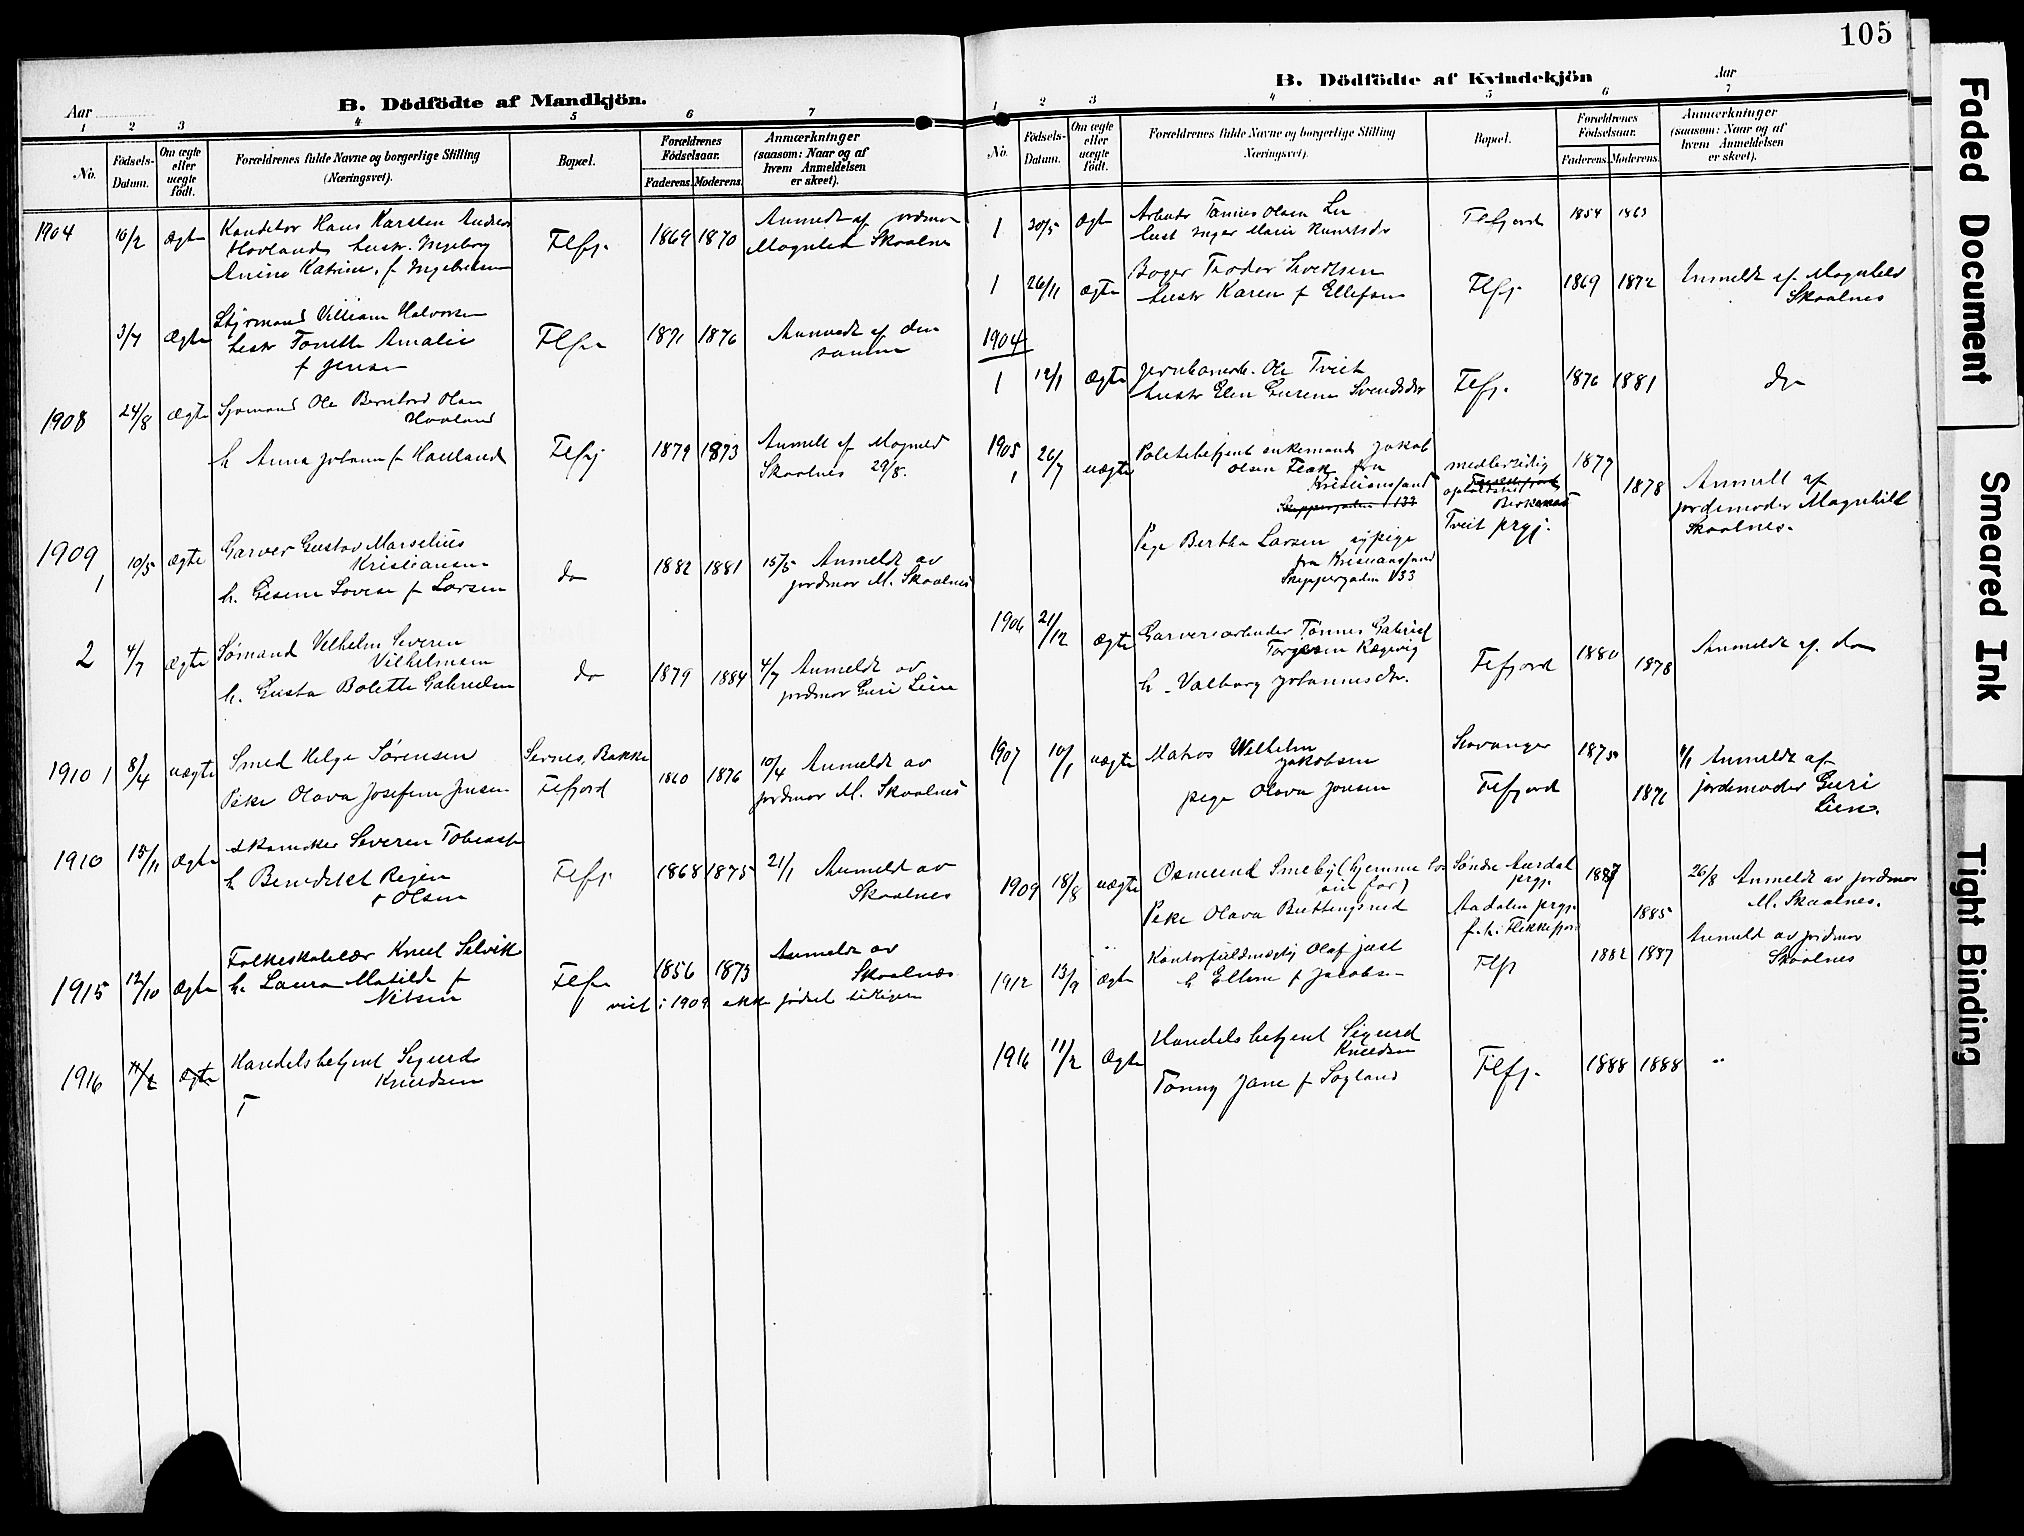 105
Faded Document
Smeared Ink
Tight Binding
B. Dödfödte af Mandkjön.
Aar
1 2 3 4 5 6 7
No.
Födsels-
Datum.
Om ægte
eller
uægte
födt.
Forældrenes fulde Navne og borgerlige Stilling
(Næringsvei).
Bopæl.
Forældrenes
Födselsaar.
Faderens. Moderens.
Anmærkninger
(saasom: Naar og af
hvem Anmeldelsen
er skeet).
1904 10/2 Ægte Konditor Hans Karsten
Hovland hustr. Ingeborg
Katrine, f Flfj. 1869 1870
Anmeldt af
Magnhild Skaalnes
3/7 Ægte Styrmand Villiam Halvorsen
hustr Tonette Amalie
f Jensen 1871 1876
Anmeldt af den
samme
1908 24/8 ægte Sjømand Ole Bernhard Olsen
Hovland
h Anna Johanne f Hauland Flfj 1879 1873
Anmeldt af
Skaalnes 29/8.
1909 1 10/5 ægte Garver Gustav Marselius
Kristiansen
h. f Larsen do 1882 1881
15/5 Anmeldt av
jordmor M. Skaalnes
2 4/7 ægte Sømand Vilhelm Severin
Vilhelmsen
h. Gusta Bolette Gabrielsen do 1879 1884
4/7 Anmeldt av
jordmor Guri Lien
1910 1 8/4 uægte Smed Helge Sørensen
Pike Olava Josefine Jensen
Sirnes, Bakke
Flfjord 1860 1876
10/4 Anmeldt av
jordmor M. Skaalnes
1910 15/11 ægte Severin
h Benedikte
f Olsen Flfj. 1868 1875
21/1 Anmeldt av
Skaalnes
1915 12/10 ægte Folkeskolelær Knut Selvik
h. Laura Matilde f
Nilsen 1856 1873
Anmeldt av
Skaalnes
viet i 1909 ikke født tidligere
1916 11/2 ægte Handelsbetjent Sigurd
Knudsen
T
B. Dödfödte af Kvindekjön
Aar
1 2 3 4 5 6 7
No.
Födsels-
Datum.
Om ægte
eller
uægte
födt.
Forældrenes fulde Navne og borgerlige Stilling
Næringsvei).
Bopæl.
Forældrenes
Födselsaar.
Faderens. Moderens.
Anmærkninger
(saasom: Naar og af
hvem Anmeldelsen
er skeet).
1 30/5 ægte Arbeider Tønnes Olsen
hust Inger Marie Knutsdr Flfjord 1854 1863
1 26/11 ægte Bager Teodor
hustr Karen f Ellefsen Flfj. 1869 1872
Anmeldt af Magnhild
Skaalnes
1904
1 12/1 ægte Ole Tveit
hustr Elen Svendsdr Flfj. 1876 1881 do
1905 1 26/7 uægte Politibetjent enkemand Jakob
Olsen fra
Kristianssand
Skippergaden 133
midlertidig
Tveit prgj. 1877
1878
Pige Bertha Larsen sypige
fra Kristianssand
Skippergaden 133
Anmeldt af
jordemoder Magnhild
Skaalnes.
1906 21/12 ægte Garveriarbeider Tønnes Gabriel
Torgersen
h. Valborg Johannesdr. Flfjord 1880 1878
Anmeldt af do
1907 10/1 uægte Matros Wilhelm
Jakobsen
pige Olava Jonsen
Stavanger
Flfjord 1875 1876
Anmeldt af
jordemoder Guri
Lien.
1909 18/8 uægte Osmund Smeby (hjemme hos
sin far)
Pike Olava
Søndre Aurdal
prgj.
Aadalen prgj.
1885
26/8 Anmeldt av jordmor
M. Skaalnes.
1912 13/9 ægte Kontorfuldmægtig Olaf Just
h Elline f Jacobsen Flfj 1882 1887
Anmeldt av jordmor
Skaalnes
1916 11/2 Ægte Handelsbetjent Sigurd
Knudsen
Tonny Jane f Søyland Flfj. 1888 1888 "